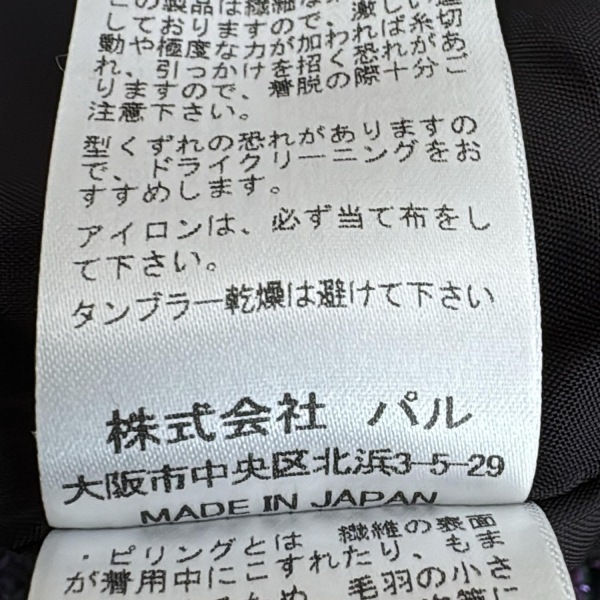 の製品は繊細な
しております
動や極度な力が加われば糸が
れ、引っかけを招く恐れがあ
りますので、着脱の際十分ご
注意下さい。
型くずれの恐れがありますの
で、ドライクリーニングをお
すすめします。
アイロンは、必ず当て布をし
て下さい。
タンブラー乾燥は避けて下さい
株式会社 パル
大阪市中央区北浜3-5-29
MADE IN JAPAN
・ピリングとは 繊維の表面
が着用中にこすれたり、もま
毛羽の小さ